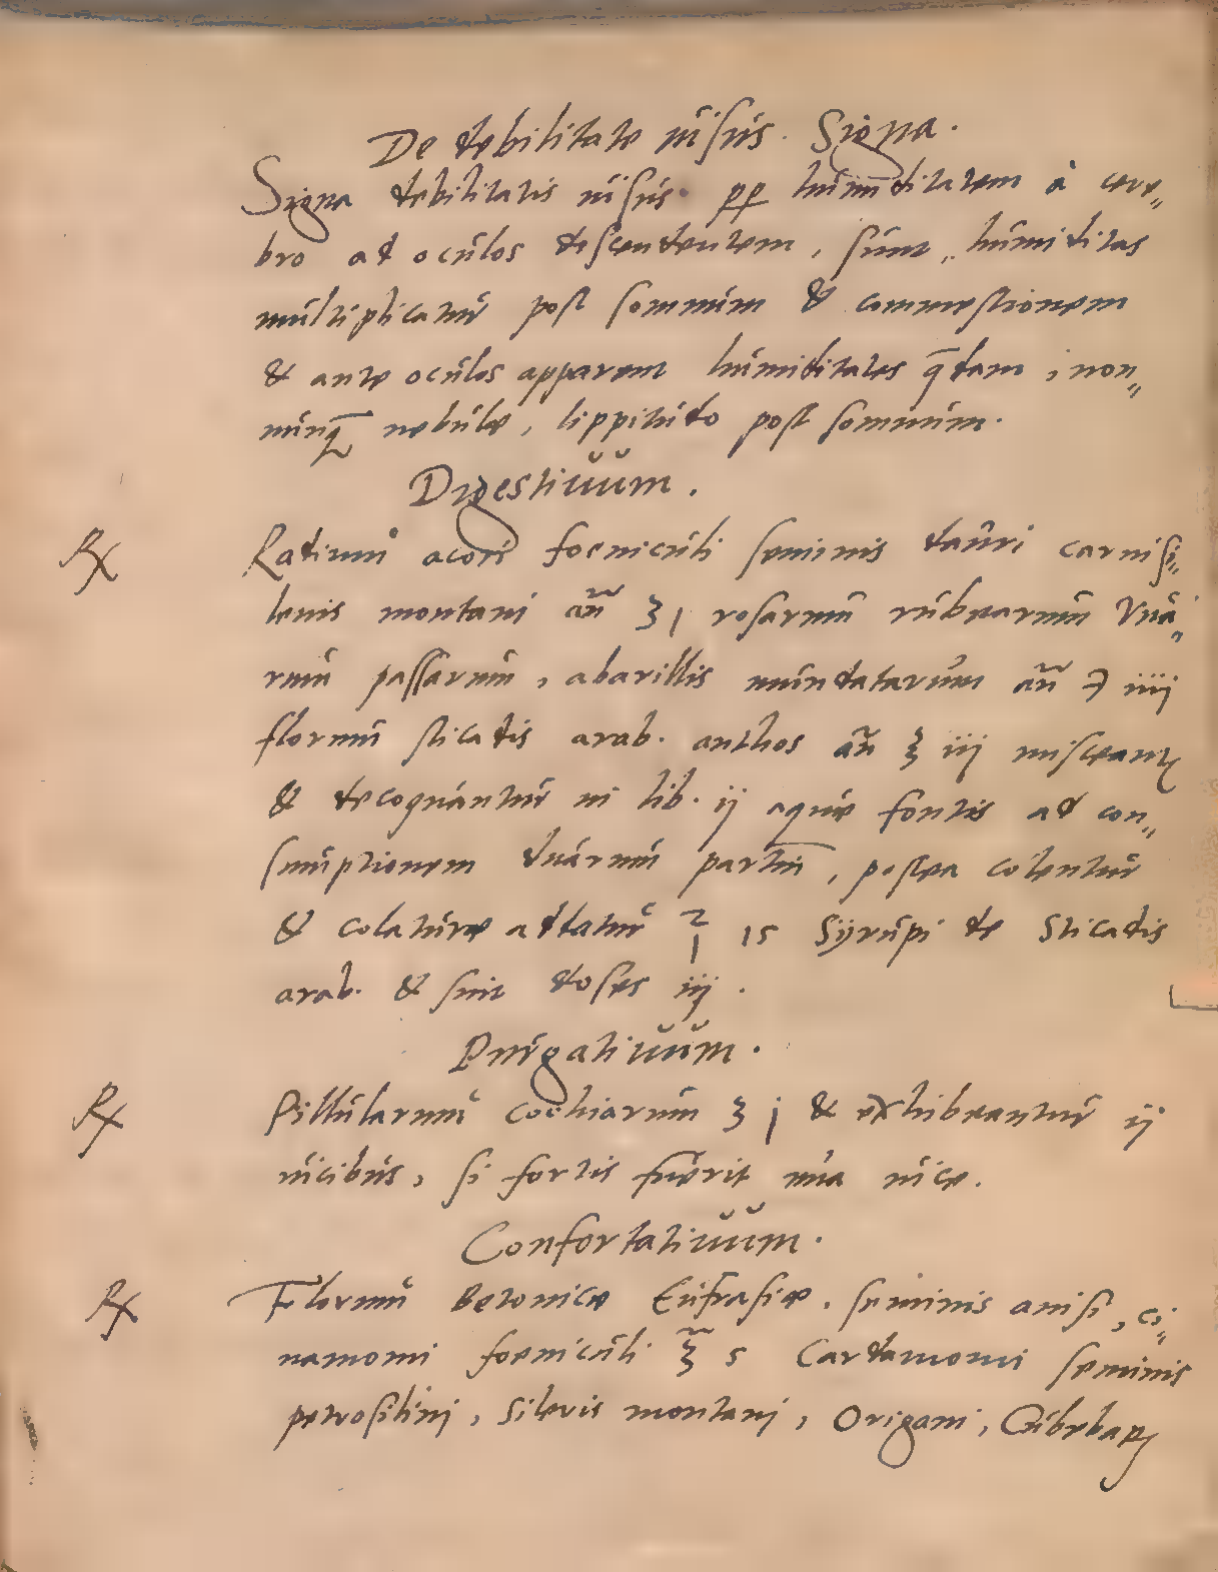 De debilitate uisus. Signa.
Signa debilitatis uisus pp humiditatem à cere„
bro ad oculos descendentem, sunt, humiditas
multiplicatur post somnum & commestionem
& ante oculos apparent humiditates q̄dam, non„
nunq̄ nebulæ, lippitudo post somnum.
Digestiuum.
℞ Radicum acori foeniculi seminis dauri carni si„
lenis montani añ ʒ j rosarum rubearum Vua„
rum passarum, abarillis mundatarum añ ℈ iiij
florum sticadis arab. anthos añ ʒ iij misceant
& decoquantur in lib. ij aquæ fontis ad con„
sumptionem duarum partiū, postea colentur
& colaturæ addatur ℥ j s Sijrupi de Sticadis
arab. & sint doses iij.
Purgatiuum.
℞ Pillularum cochiarum ʒ j & exhibeantur ij
uicibus, si fortis fuerit una uice.
Confortatiuum.
℞ Florum Betonicæ Eufrasiæ, seminis anisi, ci„
namomi foeniculi ʒ̃ s Cardamomi seminis
petrosilinj, Sileris montanj, Origani, Cubebaꝝ